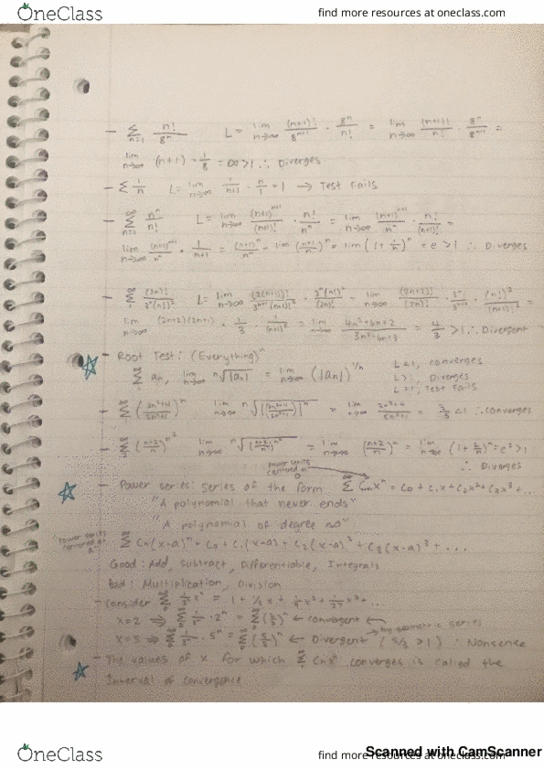 OneClass
find more resources at oneclass.com
- Σ n=1 n!/8ⁿ L = lim n→∞ (n+1)!/8ⁿ⁺¹ · 8ⁿ/n! = lim n→∞ (n+1)!/n! · 8ⁿ/8ⁿ⁺¹ =
lim n→∞ (n+1) · 1/8 = ∞ > 1 ∴ Diverges
- Σ 1/n L = lim n→∞ 1/n+1 · n/1 = 1 → Test Fails
- Σ n=1 nⁿ/n! L = lim n→∞ (n+1)ⁿ⁺¹/(n+1)! · n!/nⁿ = lim n→∞ (n+1)ⁿ⁺¹/nⁿ · n!/(n+1)! =
lim n→∞ (n+1)ⁿ⁺¹/nⁿ · 1/n+1 = (n+1)ⁿ/nⁿ = lim (n+1/n)ⁿ = lim (1 + 1/n)ⁿ = e > 1 ∴ Diverges
- Σ (2n)!/3ⁿ(n!)² L = lim n→∞ (2(n+1))!/3ⁿ⁺¹((n+1)!)² · 3ⁿ(n!)²/(2n)! = lim n→∞ (2n+2)!/(2n)! · 3ⁿ/3ⁿ⁺¹ · (n!)²/((n+1)!)² =
lim n→∞ (2n+2)(2n+1) · 1/3 · 1/(n+1)² = lim n→∞ 4n²+6n+2/3n²+6n+3 = 4/3 > 1 ∴ Divergent
- Root Test: (Everything)ⁿ
Σ aₙ, lim n→∞ ⁿ√|aₙ| = lim n→∞ (|aₙ|)^1/n L<1, converges
L>1, Diverges
L=1, Test Fails
lim n→∞ = 3/5 <1 ∴ converges
- Σ (n+2/n)^n² lim n→∞ ⁿ√|(n+2/n)^n²| = lim n→∞ (n+2/n)ⁿ = lim n→∞ (1 + 2/n)ⁿ = e² > 1
∴ Diverges
power series centered at 0
- Power series: series of the form Σ Cₙxⁿ = C₀ + C₁x + C₂x² + C₃x³ + ...
"A polynomial that never ends"
"A polynomial of degree ∞"
Power series centered at "a"
Σ Cₙ(x-a)ⁿ = C₀ + C₁(x-a) + C₂(x-a)² + C₃(x-a)³ + ...
Good: Add, Subtract, Differentiable, Integrals
Bad: Multiplication, Division
- Consider Σ 1/3ⁿ xⁿ = 1 + 1/3 x + 1/9 x² + 1/27 x³ + ...
x=2 ⇒ Σ 1/3ⁿ · 2ⁿ = Σ (2/3)ⁿ ← convergent
by geometric series
x=5 ⇒ Σ 1/3ⁿ · 5ⁿ = Σ (5/3)ⁿ ← Divergent (5/3 > 1) ∴ Nonsense
- The values of x for which Σ Cₙxⁿ converges is called the
Interval of convergence
Scanned with CamScanner
OneClass
find more resources at oneclass.com